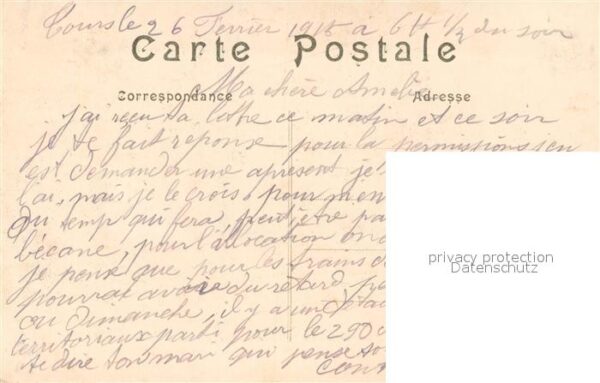 Tours le 26 Fevrier 1915 à 6H 1/2 du soir
Carte Postale
Ma chère Amelie
Correspondance Adresse
j'ai reçu ta lettre ce matin et ce soir
je te fait reponse pour la permissions j'en
est demander une apresent je
l'ai, mais je le crois pour
du temp qui fera, peut être
bécane, pour l'allocation
je pense que pour les trains
pourrat avoire du retard
ou Dimanche, il y a une
territoriaux parti pour le 290
te dire ton mari qui pense
privacy protection
Datenschutz